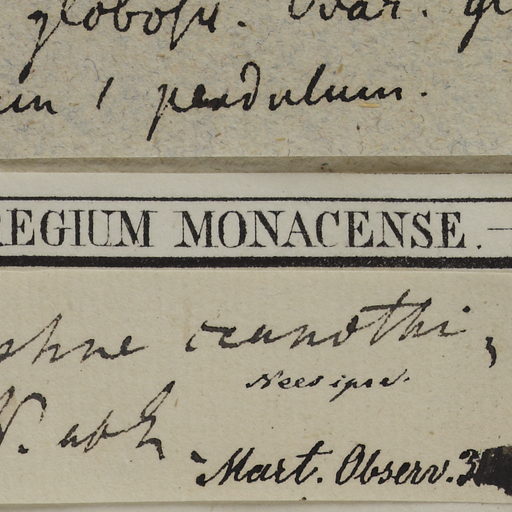 globosu. Ovar. gl
um 1 pendulum.
REGIUM MONACENSE.
phne ceanothi,
Nees ipse.
N. ab E.
Mart. Observ. 3